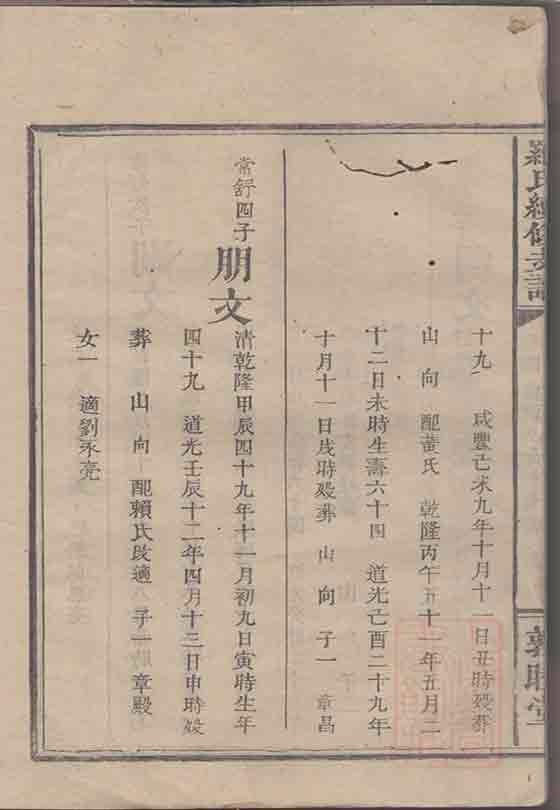 羅氏經修支譜
敦睦堂
十九 咸豐己未九年十月十一日丑時殁葬
山 向 配黃氏 乾隆丙午五十一年五月二
十二日未時生壽六十四 道光己酉二十九年
十月十一日戌時殁葬 山 向 子一 章昌
常舒四子
朋文
清乾隆甲辰四十九年十一月初九日寅時生年
四十九 道光壬辰十二年四月十三日申時殁
葬 山 向 配賴氏改適 子一 章殿
女一 適劉永亮